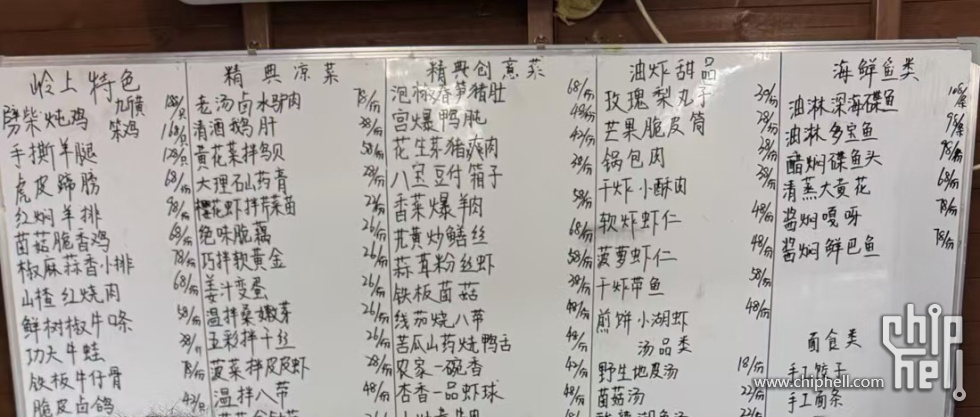 岭上特色
劈柴炖鸡 九斤黄 笨鸡 188/只
168/只
手撕羊腿 128/只
虎皮蹄膀 68/份
红焖羊排 98/份
菌菇脆香鸡 68/份
椒麻蒜香小排 78/份
山楂红烧肉 68/份
鲜树椒牛条 58/份
功夫牛蛙
铁板牛仔骨 78/份
脆皮卤鸽
精典凉菜
老汤卤水驴肉 78/份
清酒鹅肝 38/份
黄花菜拌鸟贝 58/份
大理石山药膏 28/份
樱花虾拌芹菜苗
绝味脆藕 26/份
巧拌软黄金 26/份
姜汁变蛋
温拌桑嫩芽 26/份
五彩拌干丝 26/份
菠菜拌皮皮虾 38/份
温拌八带 48/份
精典创意菜
泡椒春笋猪肚 68/份
宫爆鸭肫 48/份
花生芽猪爽肉 42/份
八宝豆付箱子 38/份
香菜爆羊肉 58/份
芃黄炒鳝丝 68/份
蒜茸粉丝虾 58/份
铁板菌菇 38/份
线茄烧八带 48/份
苦瓜山药烧鸭舌 48/份
农家一碗香
杏香一品虾球 48/份
油炸甜品
玫瑰梨丸子 29/份
芒果脆皮筒 28/份
锅包肉 38/份
干炸小酥肉 38/份
软炸虾仁 48/份
菠萝虾仁 48/份
干炸带鱼 58/份
煎饼小湖虾 48/份
汤品类
野生地皮汤 18/份
菌菇汤 22/份
海鲜鱼类
油淋深海碟鱼
油淋多宝鱼
醋焖碟鱼头 98/份
清蒸大黄花 68/份
酱焖嘎呀 78/份
酱焖鲜巴鱼 78/份
面食类
手工饺子
手工面条
chip hell
www.chiphell.com